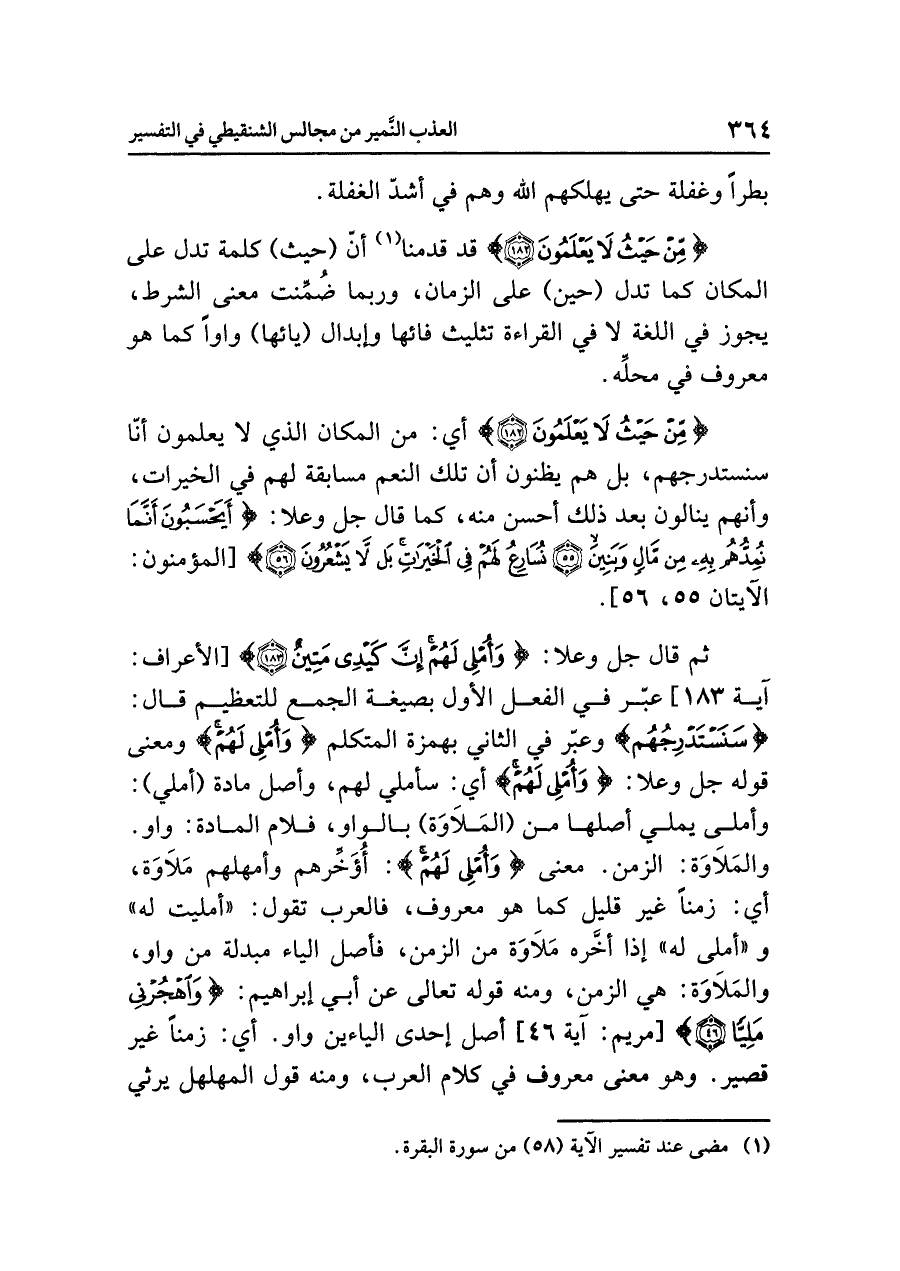 ٣٦٤ العذب النَّمير من مجالس الشنقيطي في التفسير
بطراً وغفلة حتى يهلكهم الله وهم في أشدّ الغفلة.
﴿مِّنْ حَيْثُ لَا يَعْلَمُونَ ۝١٨٢﴾ قد قدمنا(١) أنّ (حيث) كلمة تدل على
المكان كما تدل (حين) على الزمان، وربما ضُمِّنت معنى الشرط،
يجوز في اللغة لا في القراءة تثليث فائها وإبدال (يائها) واواً كما هو
معروف في محلِّه.
﴿مِّنْ حَيْثُ لَا يَعْلَمُونَ ۝١٨٢﴾ أي: من المكان الذي لا يعلمون أنّا
سنستدرجهم، بل هم يظنون أن تلك النعم مسابقة لهم في الخيرات،
وأنهم ينالون بعد ذلك أحسن منه، كما قال جل وعلا: ﴿أَيَحْسَبُونَ أَنَّمَا
نُمِدُّهُم بِهِۦ مِن مَّالٍ وَبَنِينَ ۙ۝٥٥ نُسَارِعُ لَهُمْ فِى ٱلْخَيْرَٰتِ ۚ بَل لَّا يَشْعُرُونَ ۝٥٦﴾ [المؤمنون:
الآيتان ٥٥، ٥٦].
ثم قال جل وعلا: ﴿وَأُمْلِى لَهُمْ ۚ إِنَّ كَيْدِى مَتِينٌ ۝١٨٣﴾ [الأعراف:
آيـة ١٨٣] عبّـر فـي الفعـل الأول بصيغـة الجمـع للتعظيـم قـال:
﴿سَنَسْتَدْرِجُهُم﴾ وعبّر في الثاني بهمزة المتكلم ﴿وَأُمْلِى لَهُمْ ۚ﴾ ومعنى
قوله جل وعلا: ﴿وَأُمْلِى لَهُمْ ۚ﴾ أي: سأملي لهم، وأصل مادة (أملي):
وأملـى يملـي أصلهـا مـن (المَـلاَوَة) بـالـواو، فـلام المـادة: واو.
والمَلاَوَة: الزمن. معنى ﴿وَأُمْلِى لَهُمْ ۚ﴾: أُؤَخِّرهم وأمهلهم مَلاَوَة،
أي: زمناً غير قليل كما هو معروف، فالعرب تقول: «أمليت له»
و «أملى له» إذا أخَّره مَلاَوَة من الزمن، فأصل الياء مبدلة من واو،
والمَلاَوَة: هي الزمن، ومنه قوله تعالى عن أبـي إبراهيم: ﴿وَٱهْجُرْنِى
مَلِيًّا ۝٤٦﴾ [مريم: آية ٤٦] أصل إحدى الياءين واو. أي: زمناً غير
قصير. وهو معنى معروف في كلام العرب، ومنه قول المهلهل يرثي
(١) مضى عند تفسير الآية (٥٨) من سورة البقرة.